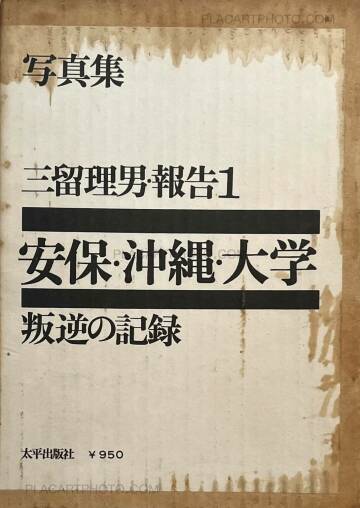 PLACARTPHOTO.COM
写真集
三留理男・報告1
安保・沖縄・大学
叛逆の記録
太平出版社 ¥950
PLACARTPHOTO.COM